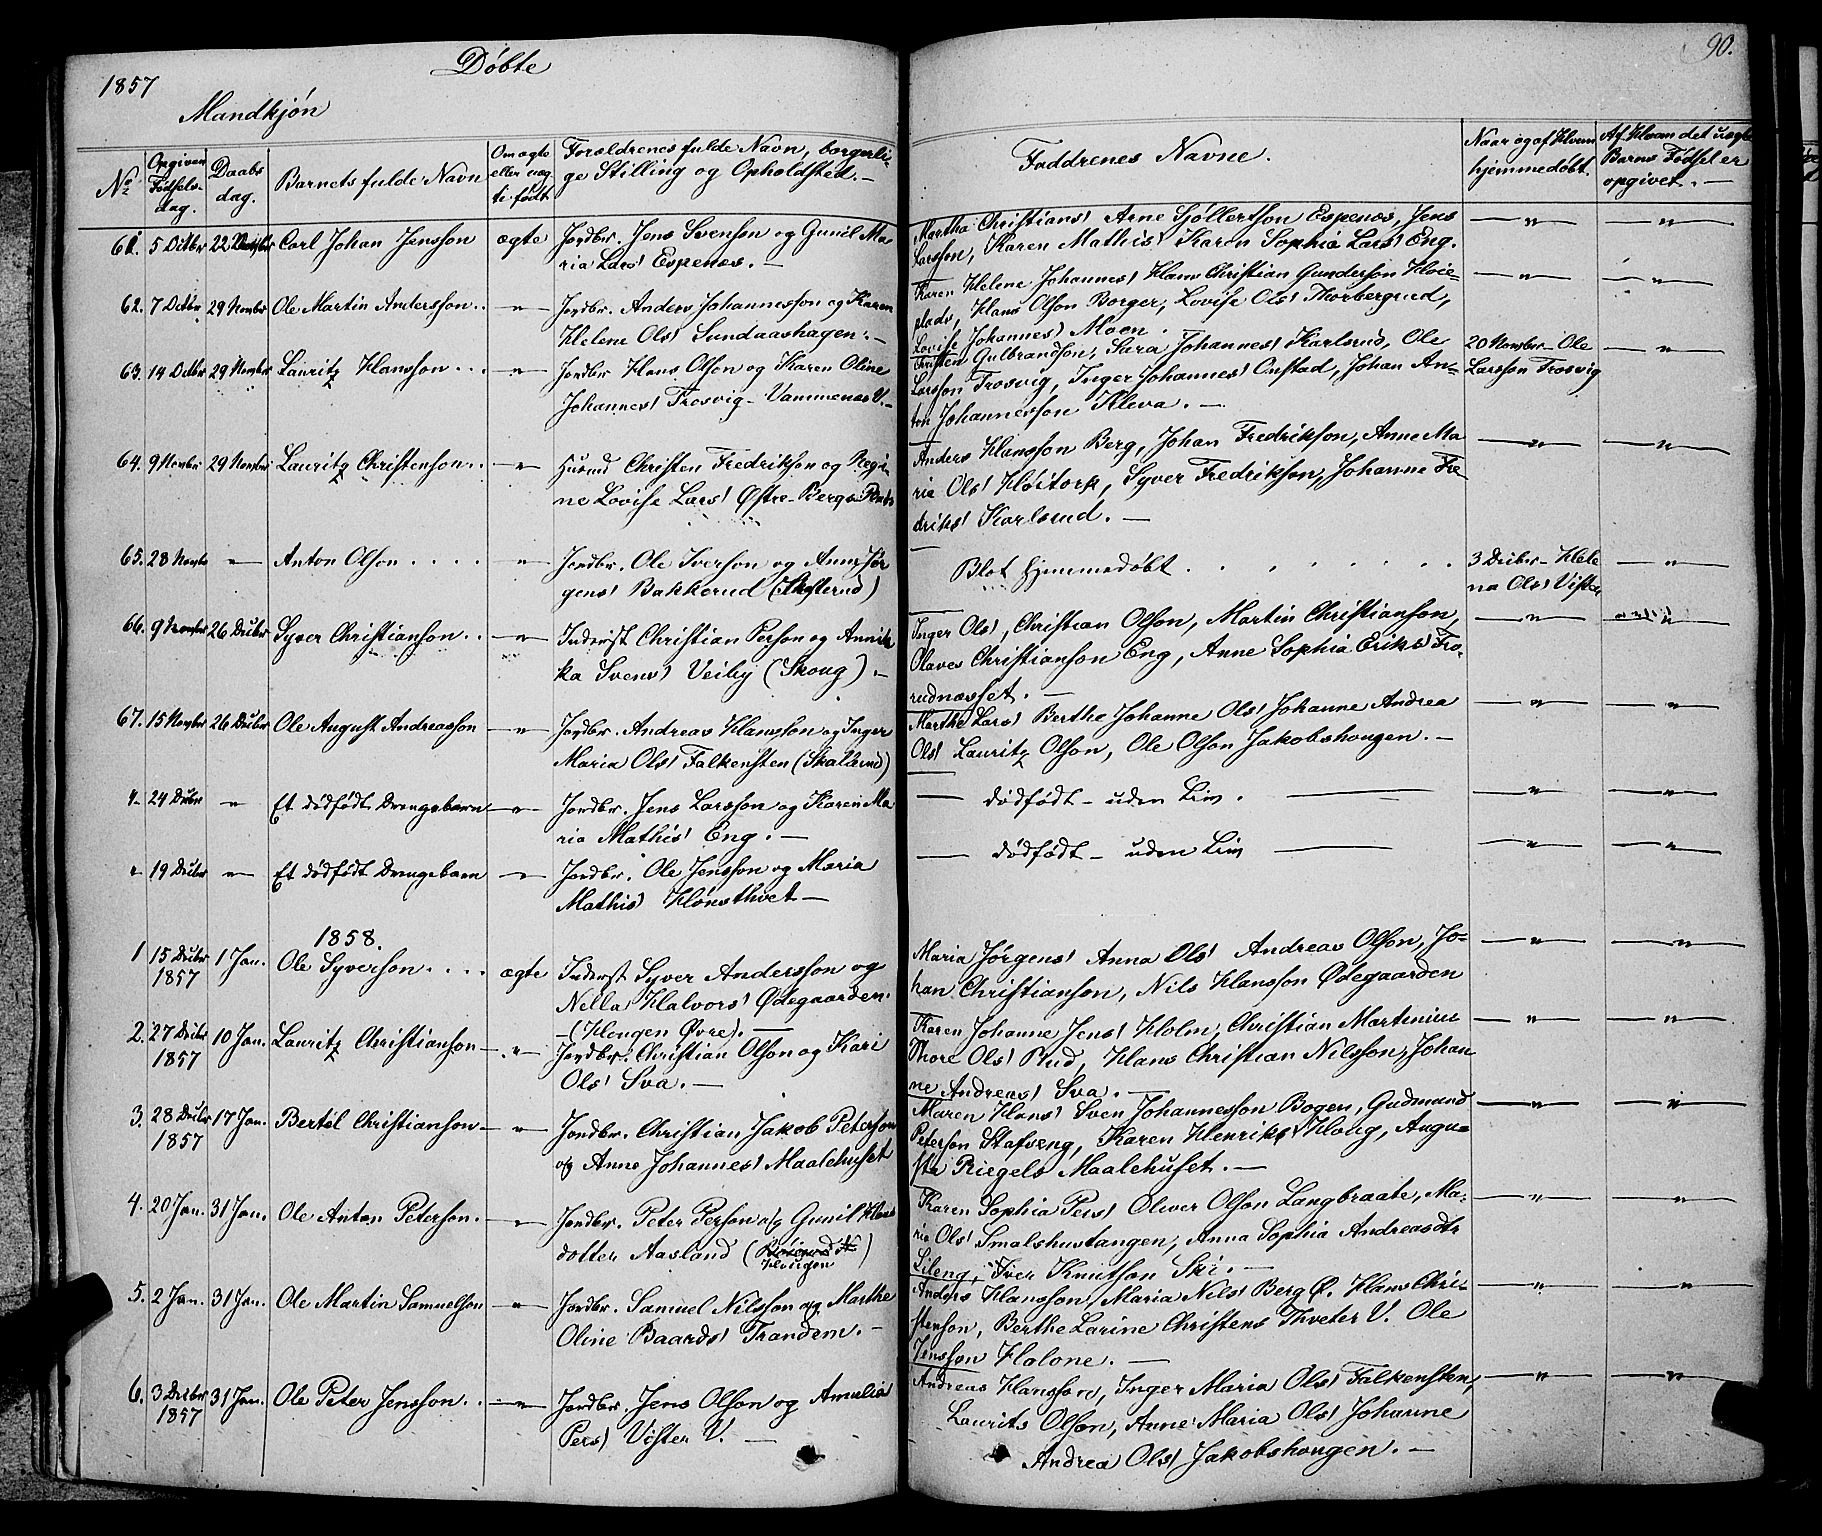 1857
Døbte
90.
Mandkjøn
No
Opgiven Fødsels-dag.
Daabs dag.
Barnets fulde Navn
Om ægte eller uæg te født
Forældrenes fulde Navn, borgerli-
ge Stilling og Opholdsted. —
Faddrenes Navne.
Naar og af Hvem
hjemmedøbt.
Af Hvem det uægte
Barns Fødsel er
opgivet. —
61. 5 Octbr 22 Novbr Carl Johan Jensson ægte Jordbr. Jens Svenson og Gunil Ma-
ria Lars! Espenæs. —
Martha Christians! Arne Sjøllertson Espenæs, Jens
Larsson, Karen Mathis! Karen Sophia Lars! Eng.
62. 7 Octbr 29 Novmbr Ole Martin Andersson.. —"— Jordbr. Anders Johannesson og Karen
Helene Ols! Sundaashagen. —
Karen Helene Johannes! Hans Christian Gunderson Høie-
plads, Hans Olson Borger, Lovise Ols! Thorbergrud,
Lovise Johannes! Moen.
63. 14 Octbr 29 Novmbr Lauritz Hansson... —"— Jordbr Hans Olson og Karen Oline
Johannes! Trosvig- Vammenæs V.—
Christen Gulbrandson, Sara Johannes! Karlsrud, Ole
Larsson Trosvig, Inger Johannes! Onstad, Johan An-
ton Johannesson Kleva. —
20 Novmber Ole
Larsson Trosvig
64. 9 Novmbr 29 Novmbr Lauritz Christenson.. —"— Husmd Christen Fredrikson og Regi-
ne Lovise Lars! Østre-Bergs
Anders Hansson Berg, Johan Fredrikson, Anne Ma
rie Ols! Høitorp, Syver Fredrikson, Johanne Fre
driks! Karlsrud. —
65. 28 Novbr —"— Anton Olson.... —"— Jordbr. Ole Iverson og Anne Jør
gens! Bakkerud
Blot hjemmedøbt.......
3 Decbr- Hele
na Ols! Vister
66. 9 Novmbr 26 Decbr Syver Christianson.. —"— Inderst Christian Person og Annik
ka Svens! Veiby (Skoug). —
Inger Ols!, Christian Olson, Martin Christianson,
Olaves Christianson Eng, Anne Sophia Eriks! Fro-
rudnæsset. —
67. 15 Novmbr 26 Decbr Ole August Andreasson —"— Jordbr. Andreas Hansson og Inger
Maria Ols! Falkensten (Skallerud)
Marthe Lars! Berthe Johanne Ols! Johanne Andrea
Ols! Lauritz Olson, Ole Olson Jakobshougen. —
"- 24 Decbr —"— Et dødfødt Drengebarn —"— Jordbr. Jens Larsson og Karen Ma
ria Mathis! Eng. —
— dødfødt - uden Liv. —
"- 19 Decbr —"— Et dødfødt Drengebarn —"— Jordbr. Ole Jensson og Maria
Mathis! Hønsthvet —
— dødfødt - uden Liv —
1858.
1 15 Decbr 1857 1 Jan. Ole Syverson.... ægte Inderst Syver Andersson og
Nella Halvors! Ødegaarden.
— (Hougen Øvre). —
Maria Jørgens! Anna Ols! Andreas Olson, Jo-
han Christianson, Nils Hansson Ødegaarden
2. 27 Decbr 1857 10 Jan. Lauritz Christianson —"— Jordbr. Christian Olson og Kari
Ols! Sva. —
Karen Johanne Jens! Holm, Christian Martinius
Thore Ols! Rud, Hans Christian Nilsson, Johan
ne Andreas! Sva. —
3. 28 Decbr 1857 17 Jan. Bertel Christianson —"— Jordbr. Christian Jakob Peterson
og Anne Johannes! Maalehuset
Maren Hans! Sven Johannesson Bogen, Gudmund
Peterson Stafveng, Karen Henriks! Houg, Augu-
sta Riegels Maalehuset. —
4. 20 Jan. 31 Jan. Ole Anton Peterson. —"— Jordbr. Peter Person og Gunil Hans
dotter Aasland (Hougen)
Karen Sophia Pers! Oliver Olson Langbraate, Ma-
ria Ols! Smalshustangen, Anna Sophia Andreasdtr
Lileng, Iver Knutson Ski. —
5. 2 Jan. 31 Jan. Ole Martin Samuelson —"— Jordbr. Samuel Nilsson og Marthe
Oline Baards! Trandem. —
Anders Hansson, Maria Nils! Berg Ø. Hans Chri-
stenson, Berthe Larine Christens Thveter V. Ole
Jensson Halone. —
6. 3 Decbr 1857 31 Jan. Ole Peter Jensson.. —"— Jordbr. Jens Olson og Amalia
Pers! Vister V. —
Andreas Hansson, Inger Maria Ols! Falkensten,
Laurits Olson, Anne Maria Ols! Johanne
Andrea Ols! Jakobshougen. —